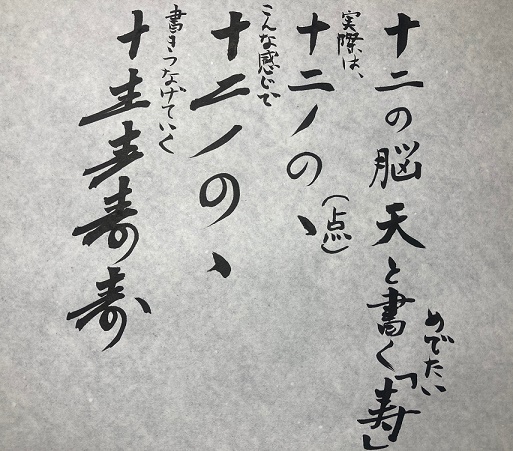 十二の脳天と書く「寿」
めでたい
実際は、
十二ノの、
(点)
こんな感じで
十二ノの、
書きつなげていく
十 圭 寿 寿